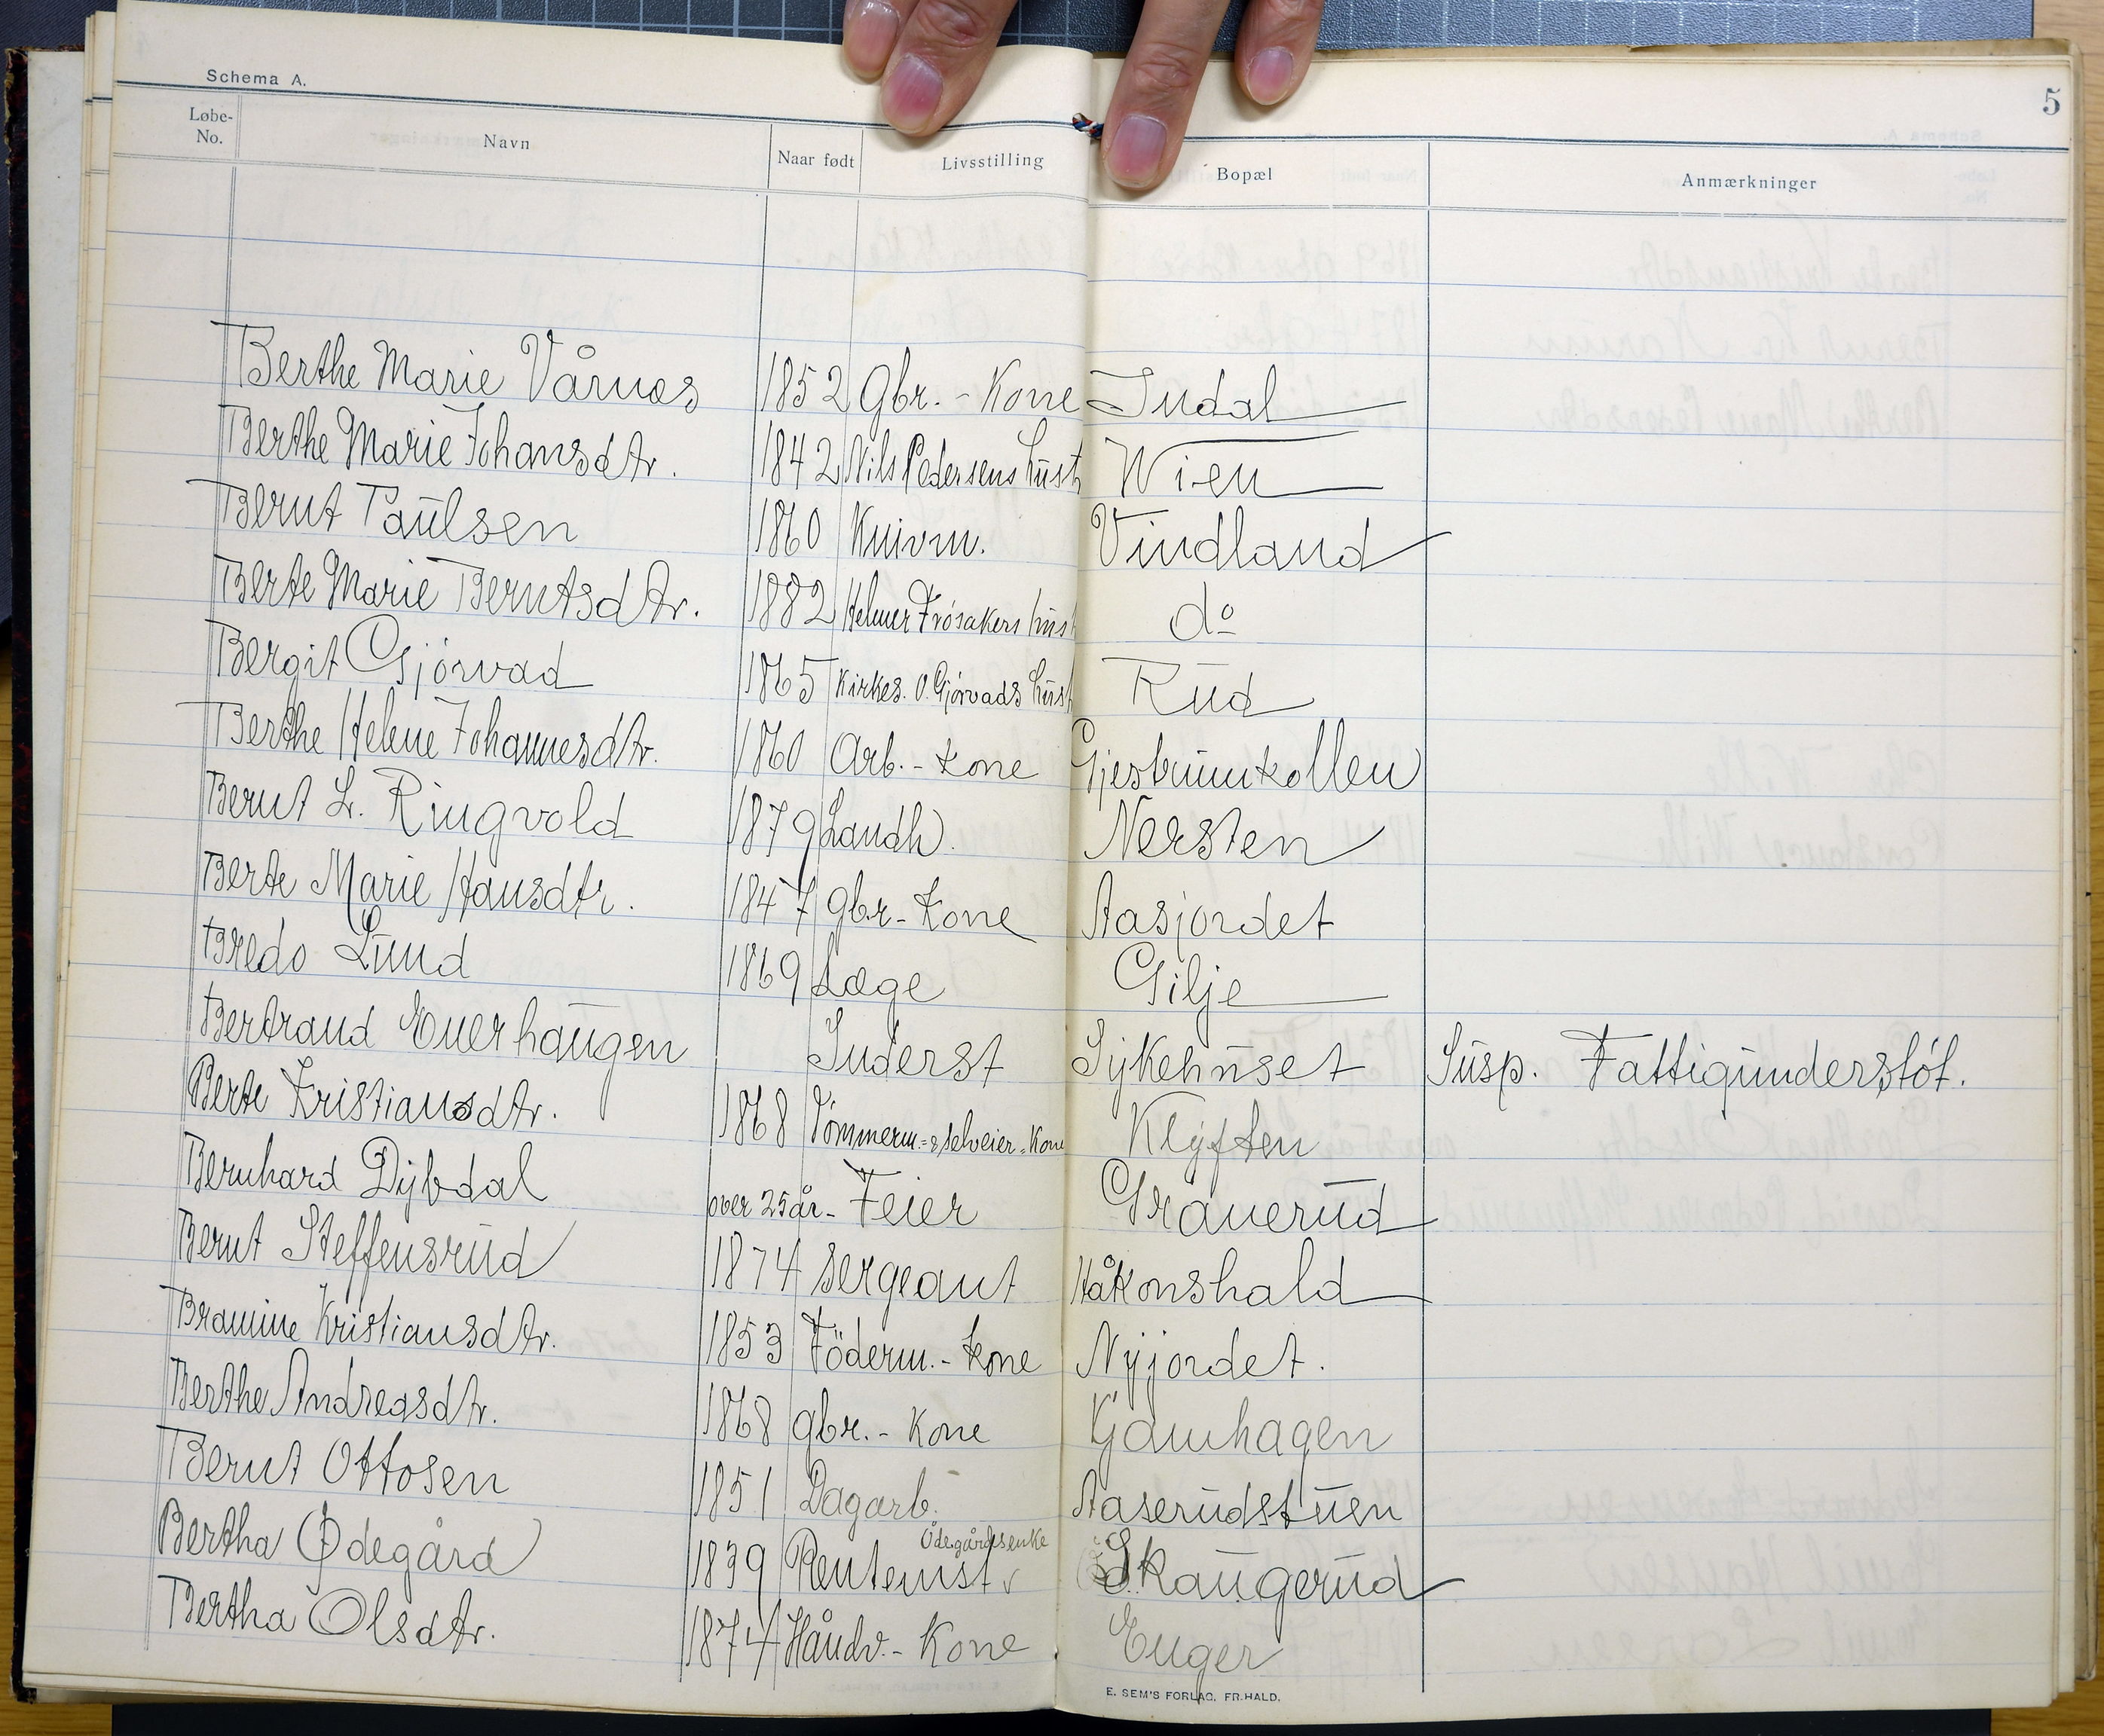 Schema A.
5
Løbe-No. Navn Naar født Livsstilling Bopæl Anmærkninger
Berthe Marie Vårnæs 1852 Gbr. - Kone Indal
Berthe Marie Johansdtr. 1842 Nils Pedersens hust Wien
Bernt Paulsen 1860 Knivm. Vindland
Berte Marie Berntsdtr. 1882 Helmer Frösakers hust do
Bergit Gjörvad 1865 Kirkes. O. Gjörvads hust Rud
Berthe Helene Johannesdtr. 1860 Arb. - kone Gjesbumkollen
Bernt L. Ringvold 1879 Landh. Nersten
Berte Marie Hansdtr. 1847 gbr - kone Aasjordet
Bredo Lund 1869 Læge Gilje
Bertrand Enerhaugen Inderst Sykehuset Susp. Fattigunderstöt.
Berte Kristiansdtr. 1868 Tömmerm.= & selveier - Kone Klyften
Bernhard Dybdal over 25 år - Feier Granerud
Bernt Steffensrud 1874 Sergeant Håkonshald
Bramine Kristiansdtr. 1853 Föderm. - kone Nyjordet.
Berthe Andreasdtr. 1868 gbr. - Kone Gamhagen
Bernt Ottosen 1851 Dagarb. Aaserudstuen
Bertha Ødegård 1839 Rentenist Ödegårdsenke Skaugerud
Bertha Olsdtr. 1874 Håndv. - Kone Enger
E. SEM'S FORLAG, FR.HALD.